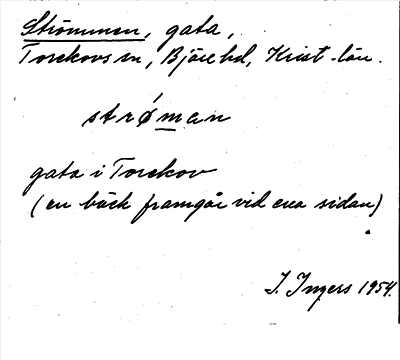 Strömmen, gata,
Torekovs sn, Bjäre hd, Krist. län.
strǿman
gata i Torekov
(en bäck framgår vid ena sidan)
I. Ingers 1954.